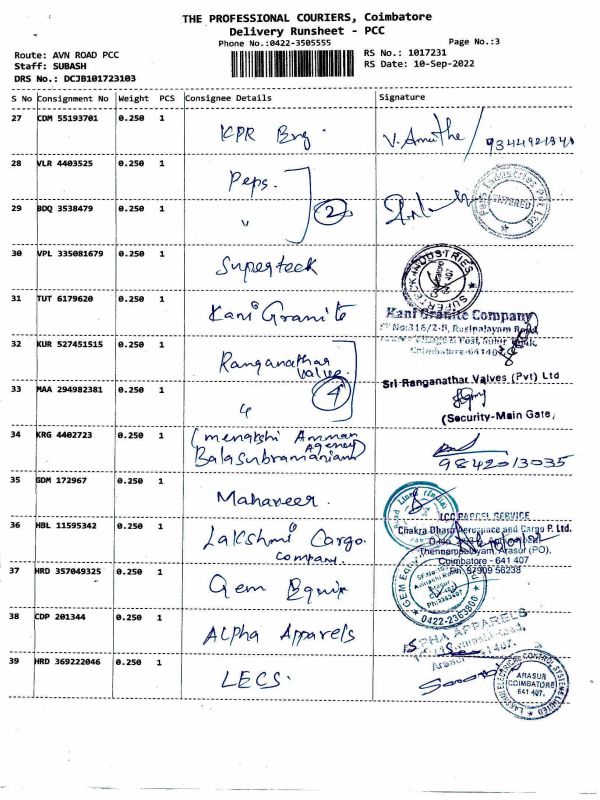 THE PROFESSIONAL COURIERS, Coimbatore
Delivery Runsheet - PCC
Phone No.:0422-3505555
Page No.:3
Route: AVN ROAD PCC
RS No.: 1017231
Staff: SUBASH
RS Date: 10-Sep-2022
DRS No.: DCJB101723103
S No Consignment No Weight PCS Consignee Details Signature
27 CDM 55193701 0.250 1 KPR Brg. V. Amutha / 9344921940
28 VLR 4403525 0.250 1 Peps.
29 BDQ 3538479 0.250 1 " 2
30 VPL 335081679 0.250 1 Superteck
31 TUT 6179620 0.250 1 Kani Granite
Kani Granite Company
SF No:316/2-B, Rasipalayam Road
Coimbatore-641402
32 KUR 527451515 0.250 1 Ranganathar
Valve.
33 MAA 294982381 0.250 1 " 4
Sri Ranganathar Valves (Pvt) Ltd
(Security-Main Gate)
34 KRG 4402723 0.250 1 (menakshi Amman
Agency)
Balasubramaniam
9842013035
35 GDM 172967 0.250 1 Mahaveer.
36 HBL 11595342 0.250 1 Lakshmi Cargo
Company.
LCC PARCEL SERVICE
Chakra Dhara Aerospace and Cargo P. Ltd.
Thennampalayam, Arasur (PO),
Coimbatore - 641 407
Ph: 87909 56238
37 HRD 357049325 0.250 1 Gem Equip
0422-2363800
38 CDP 201344 0.250 1 Alpha Apparels
ALPHA APPARELS
39 HRD 369222046 0.250 1 LECS.
ARASUR
COIMBATORE
641 407.